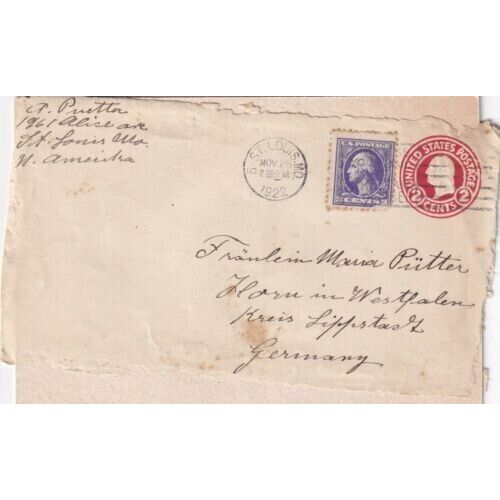 F. Puetter
1961 Alice ave
St. Louis Mo.
N. Amerika
ST. LOUIS, MO.
NOV 28
7 PM
1922
U.S. POSTAGE
3 CENTS 3
UNITED STATES POSTAGE
2 CENTS 2
Fräulein Maria Pütter
Horn in Westfalen
Kreis Lippstadt
Germany